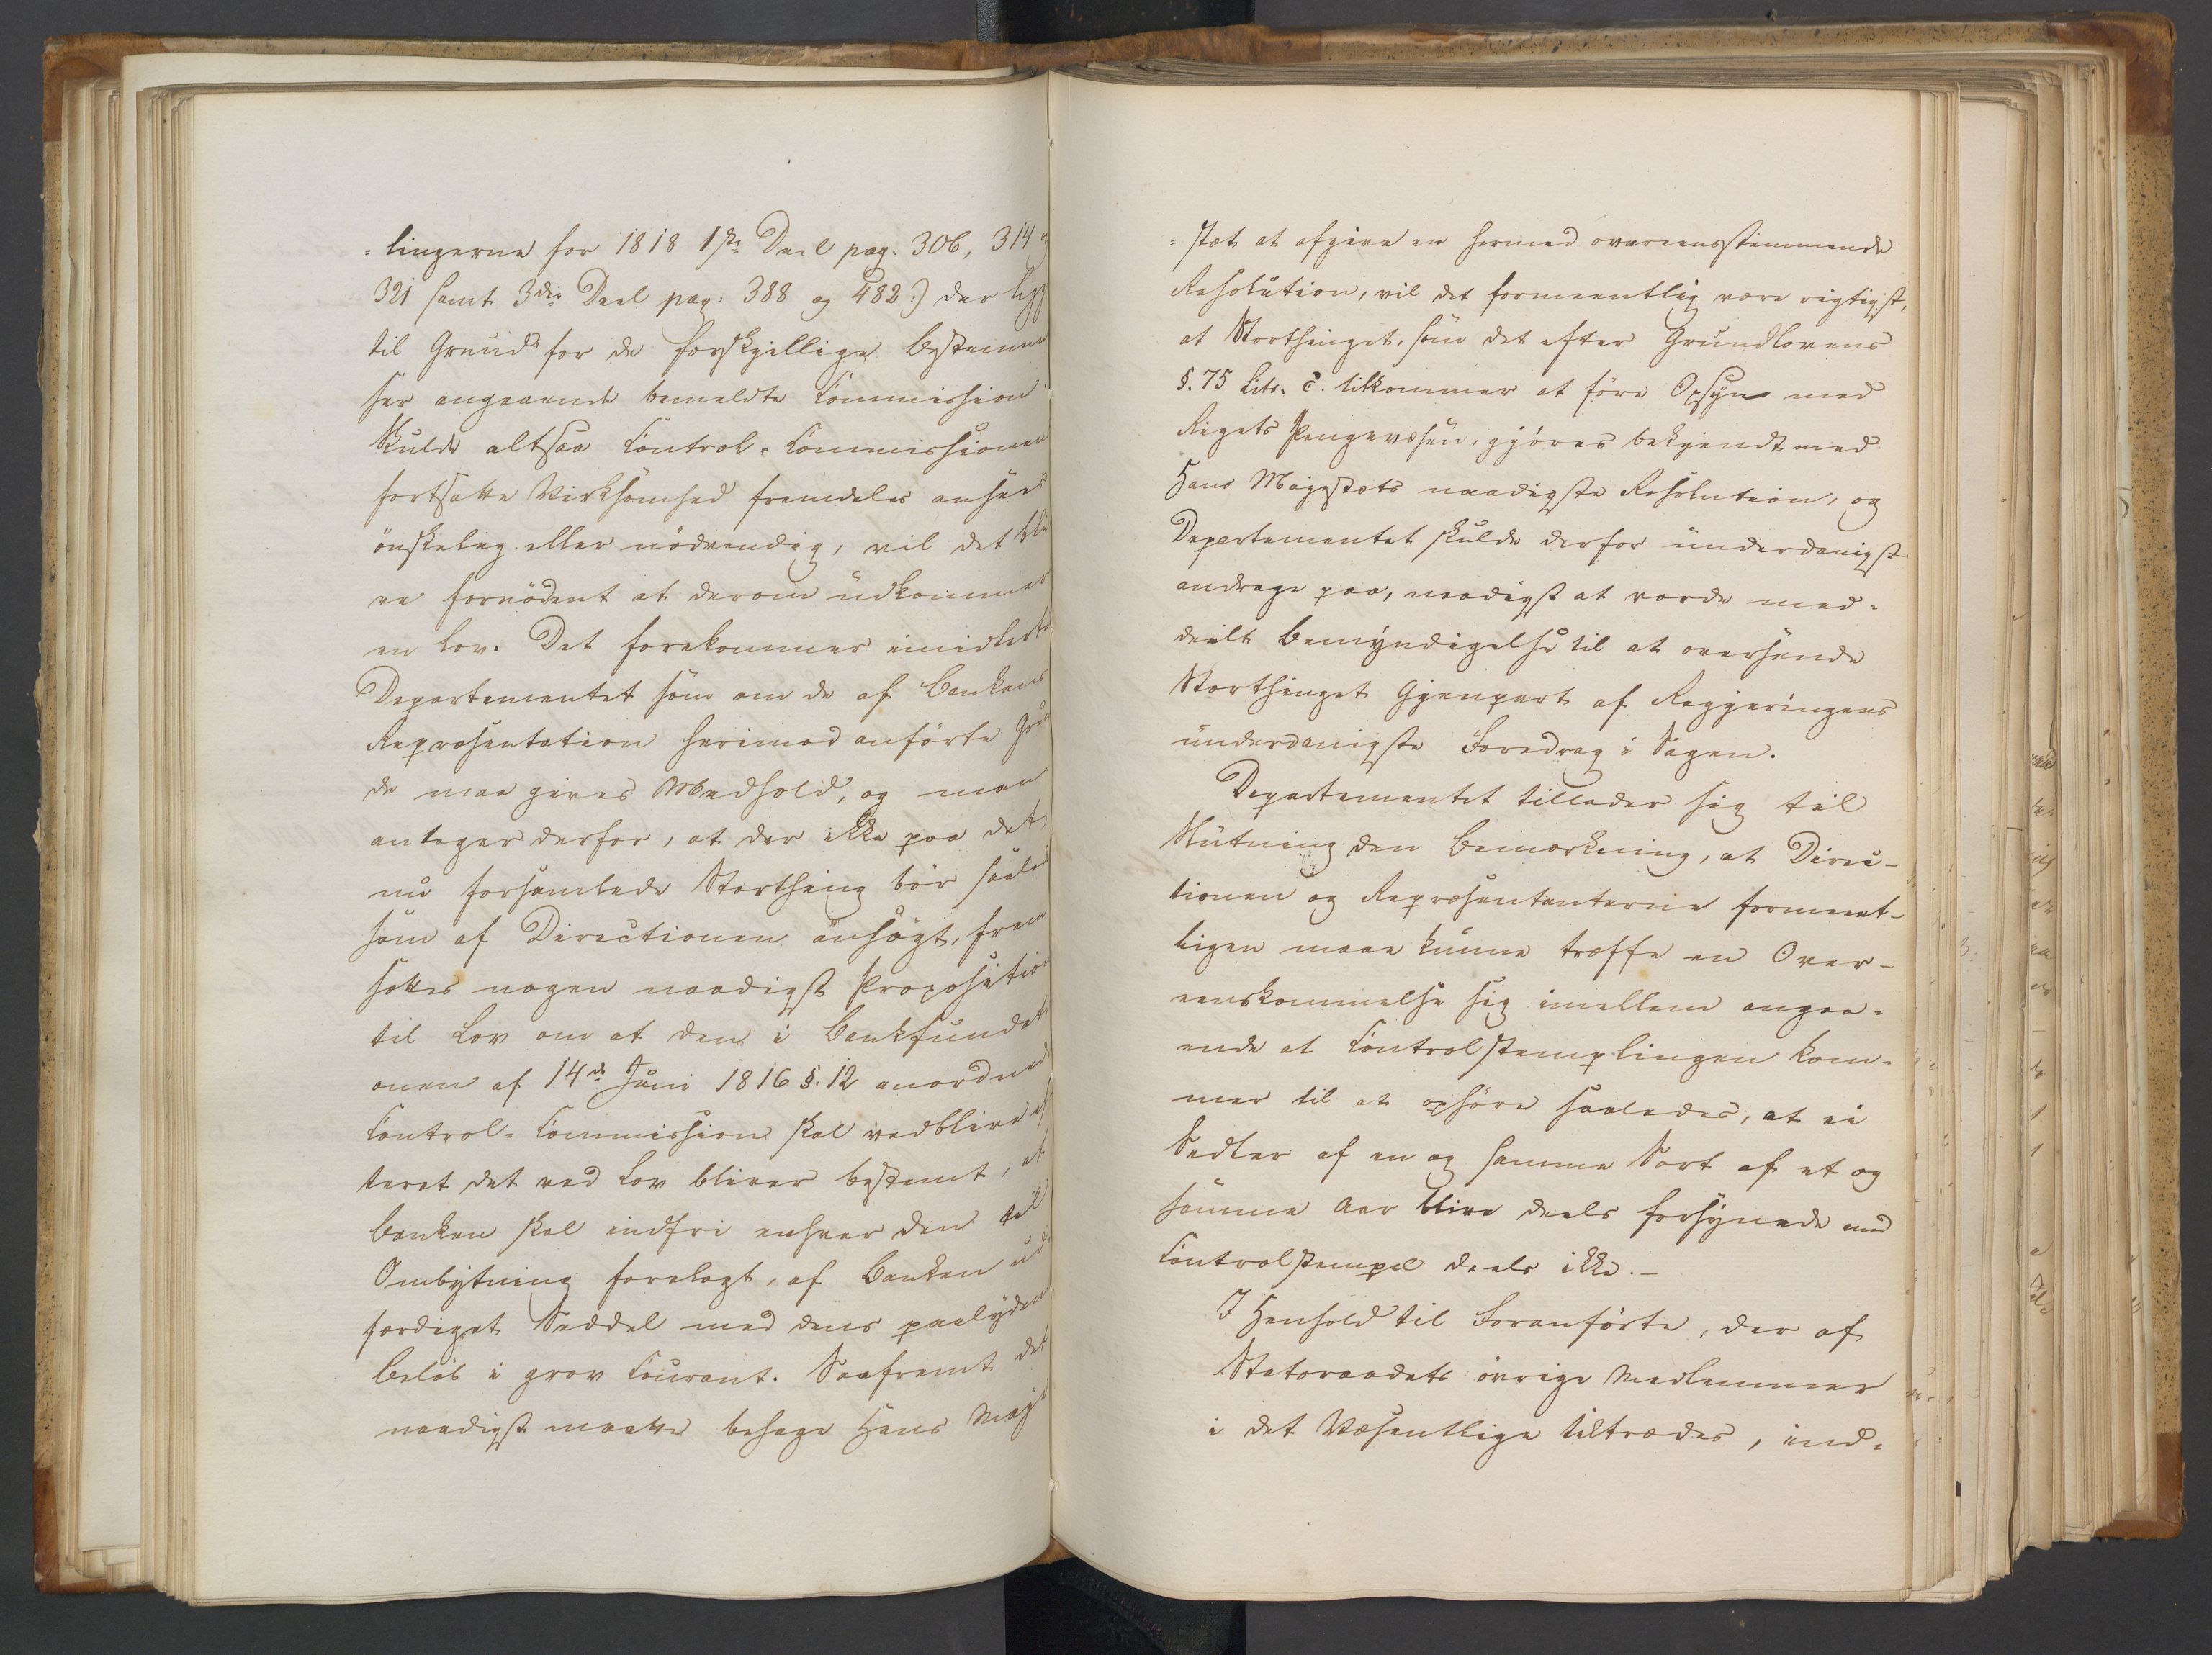 -lingerne for 1818 1ste Deel pag. 306, 314 og
321 samt 3die Deel pag. 388 og 482:) der ligge
til Grund for de forskjellige Bestemmel
ser angaaende bemeldte Commission.
Skulde altsaa Control-Commissionens
fortsatte Virksomhed fremdeles ansees
önskelig eller nödvendig, vil det bli
ve fornödent at derom udkommer
en Lov. Det forekommer imidlertid
Departementet som om de af Bankens
Repræsentation herimod anförte Grun
de maa gives Medhold, og man
antager derfor, at der ikke paa det
nu forsamlede Storthing bör saaledes
som af Directionen ansögt, frem
sættes nogen naadigst Proposition
til Lov om at den i Bankfundati
onen af 14de Juni 1816 §. 12 anordnede
Control-Commission skal vedblive ef
teret det ved Lov bliver bestemt, at
Banken skal indfri enhver den til
Ombytning forelagt, af Banken ud
færdiget Seddel med dens paalydende
Belöb i grov Courant. Saafremt det
naadigst maatte behage Hans Maje
-stæt at afgive en hermed overeensstemmende
Resolution, vil det formeentlig være rigtigst,
at Storthinget, som det efter Grundlovens
§. 75 Litr. c. tilkommer at före Opsyn med
Rigets Pengevæsen, gjöres bekjendt med
Hans Majestæts naadigste Resolution, og
Departementet skulde derfor underdanigst
andrage paa, naadigst at vorde med-
deelt Bemyndigelse til at oversende
Storthinget Gjenpart af Regjeringens
underdanigste Foredrag i Sagen.
Departementet tillader sig til
Slutning den Bemærkning, at Direc-
tionen og Repræsentanterne formeent-
ligen maae kunne træffe en Over-
eenskommelse sig imellem angaa-
ende at Controlstemplingen kom-
mer til at ophöre saaledes, at ei
Sedler af en og samme Sort af et og
samme Aar blive deels forsynede med
Controlstempel deels ikke.-
I Henhold til Foranförte, der af
Statsraadets övrige Medlemmer
i det Væsentlige tiltrædes, ind-